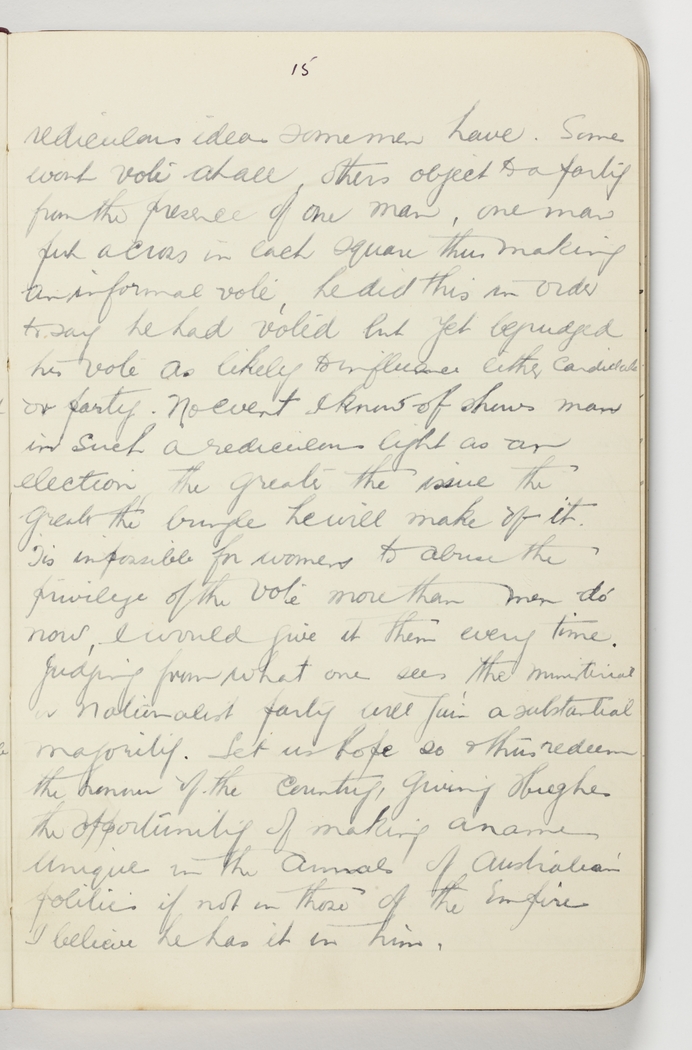 15
rediculous ideas some men have. Some
wont vote at all, others object to a party
from the presence of one man, one man
put a cross in each square thus making
an informal vote, he did this in order
to say he had voted but yet begrudged
his vote as likely to influence either candidate
or party. No event I know of shows man
in such a rediculous light as an
election, the greater the issue the
greater the bungle he will make of it.
Tis impossible for women to abuse the
privilege of the vote more than men do
now, I would give it them every time.
Judging from what one sees the ministerial
or Nationalist party will gain a substantial
majority. Let us hope so & thus redeem
the honour of the Country, giving Hughes
the opportunity of making a name
unique in the annals of Australian
politics if not in those of the Empire
I believe he has it in him.